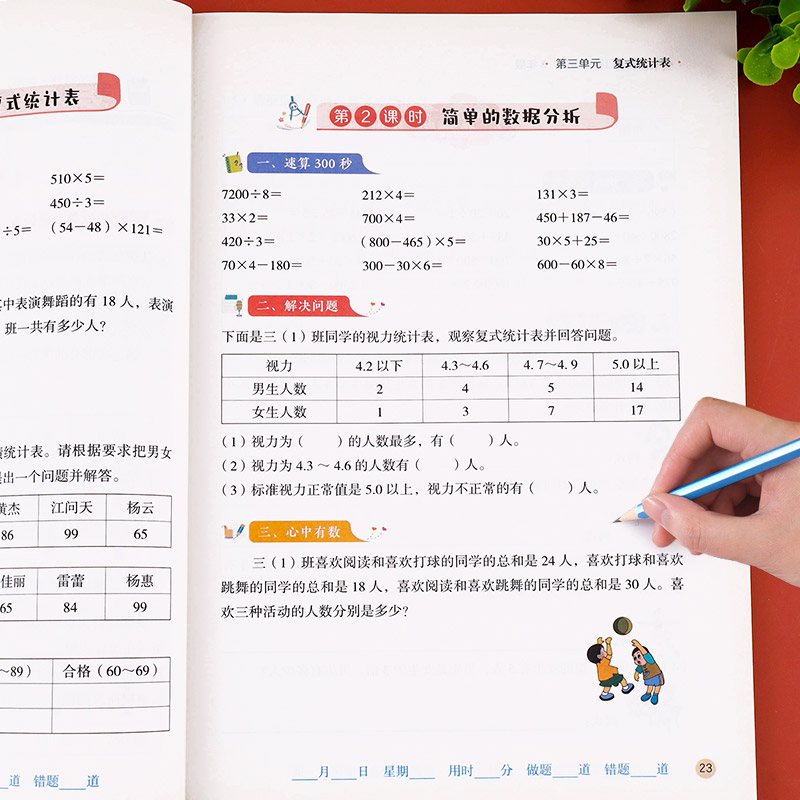 式统计表
510×5=
450÷3=
÷5= （54－48）×121=
其中表演舞蹈的有 18 人，表演
班一共有多少人？
统计表。请根据要求把男女
提出一个问题并解答。
黄杰 江问天 杨云
86 99 65
佳丽 雷蕾 杨惠
65 84 99
～89） 合格（60～69）
道 错题____道
· 第三单元 复式统计表 ·
第2课时 简单的数据分析
一、速算 300 秒
7200÷8= 212×4= 131×3=
33×2= 700×4= 450+187－46=
420÷3= （800－465）×5= 30×5+25=
70×4－180= 300－30×6= 600－60×8=
二、解决问题
下面是三（1）班同学的视力统计表，观察复式统计表并回答问题。
视力 4.2 以下 4.3～4.6 4.7～4.9 5.0 以上
男生人数 2 4 5 14
女生人数 1 3 7 17
（1）视力为（ ）的人数最多，有（ ）人。
（2）视力为 4.3 ～ 4.6 的人数有（ ）人。
（3）标准视力正常值是 5.0 以上，视力不正常的有（ ）人。
三、心中有数
三（1）班喜欢阅读和喜欢打球的同学的总和是 24 人，喜欢打球和喜欢
跳舞的同学的总和是 18 人，喜欢阅读和喜欢跳舞的同学的总和是 30 人。喜
欢三种活动的人数分别是多少？
____月____日 星期____ 用时____分 做题____道 错题____道
23